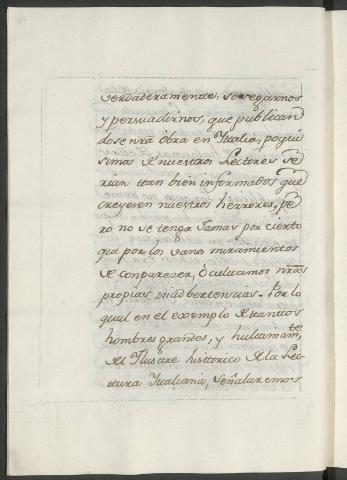 verdaderamente, sosegarnos
y persuadirnos, que publican
dose nr̃a òbra en Ytalia, poquí
simos de nuestros Lectores se
rian tan bien informados, que
creyesen nuestros herrores, pe
ro no se tenga Jamas por cierto
qui por los vanos miramientos
de conparecer, òcultamos nr̃as
propias inadbertencias. Por lo
qual en el exemplo de tantos
hombres grandes, y hultimamte
del Ylustre historico de la Lec
tura Ytaliana, señalaremos